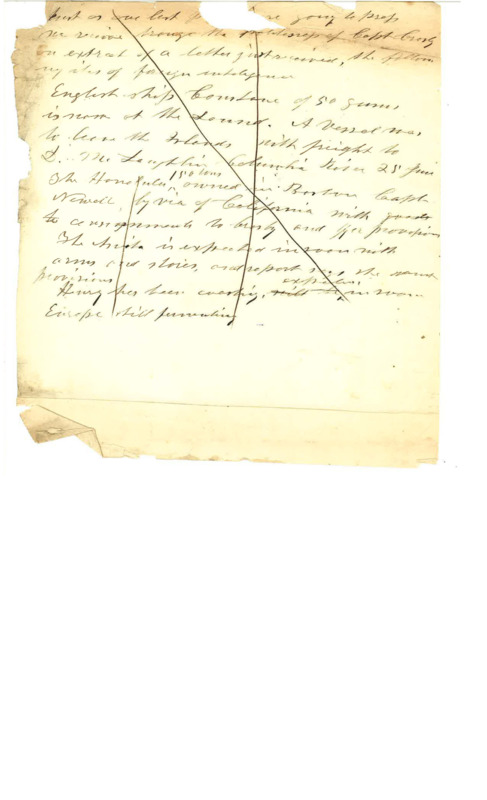 Just as our last going to press
we receive through the politeness of Capt. Crosby
an extract of a letter just received, the follow
ing items of foreign inteligence
English ship Constance of 50 guns
is now at the Sound. A vessel was
to leave the Islands with freight to
D. McLoughlin Columbia River 25 June
The Honolulu, 150 tons owned in Boston Capt.
Newell, by via of California with goods
to consignments to and for provisions
The is expected in soon with
arms and stores, and report says the same
provisions
has been expected in soon
Europe still